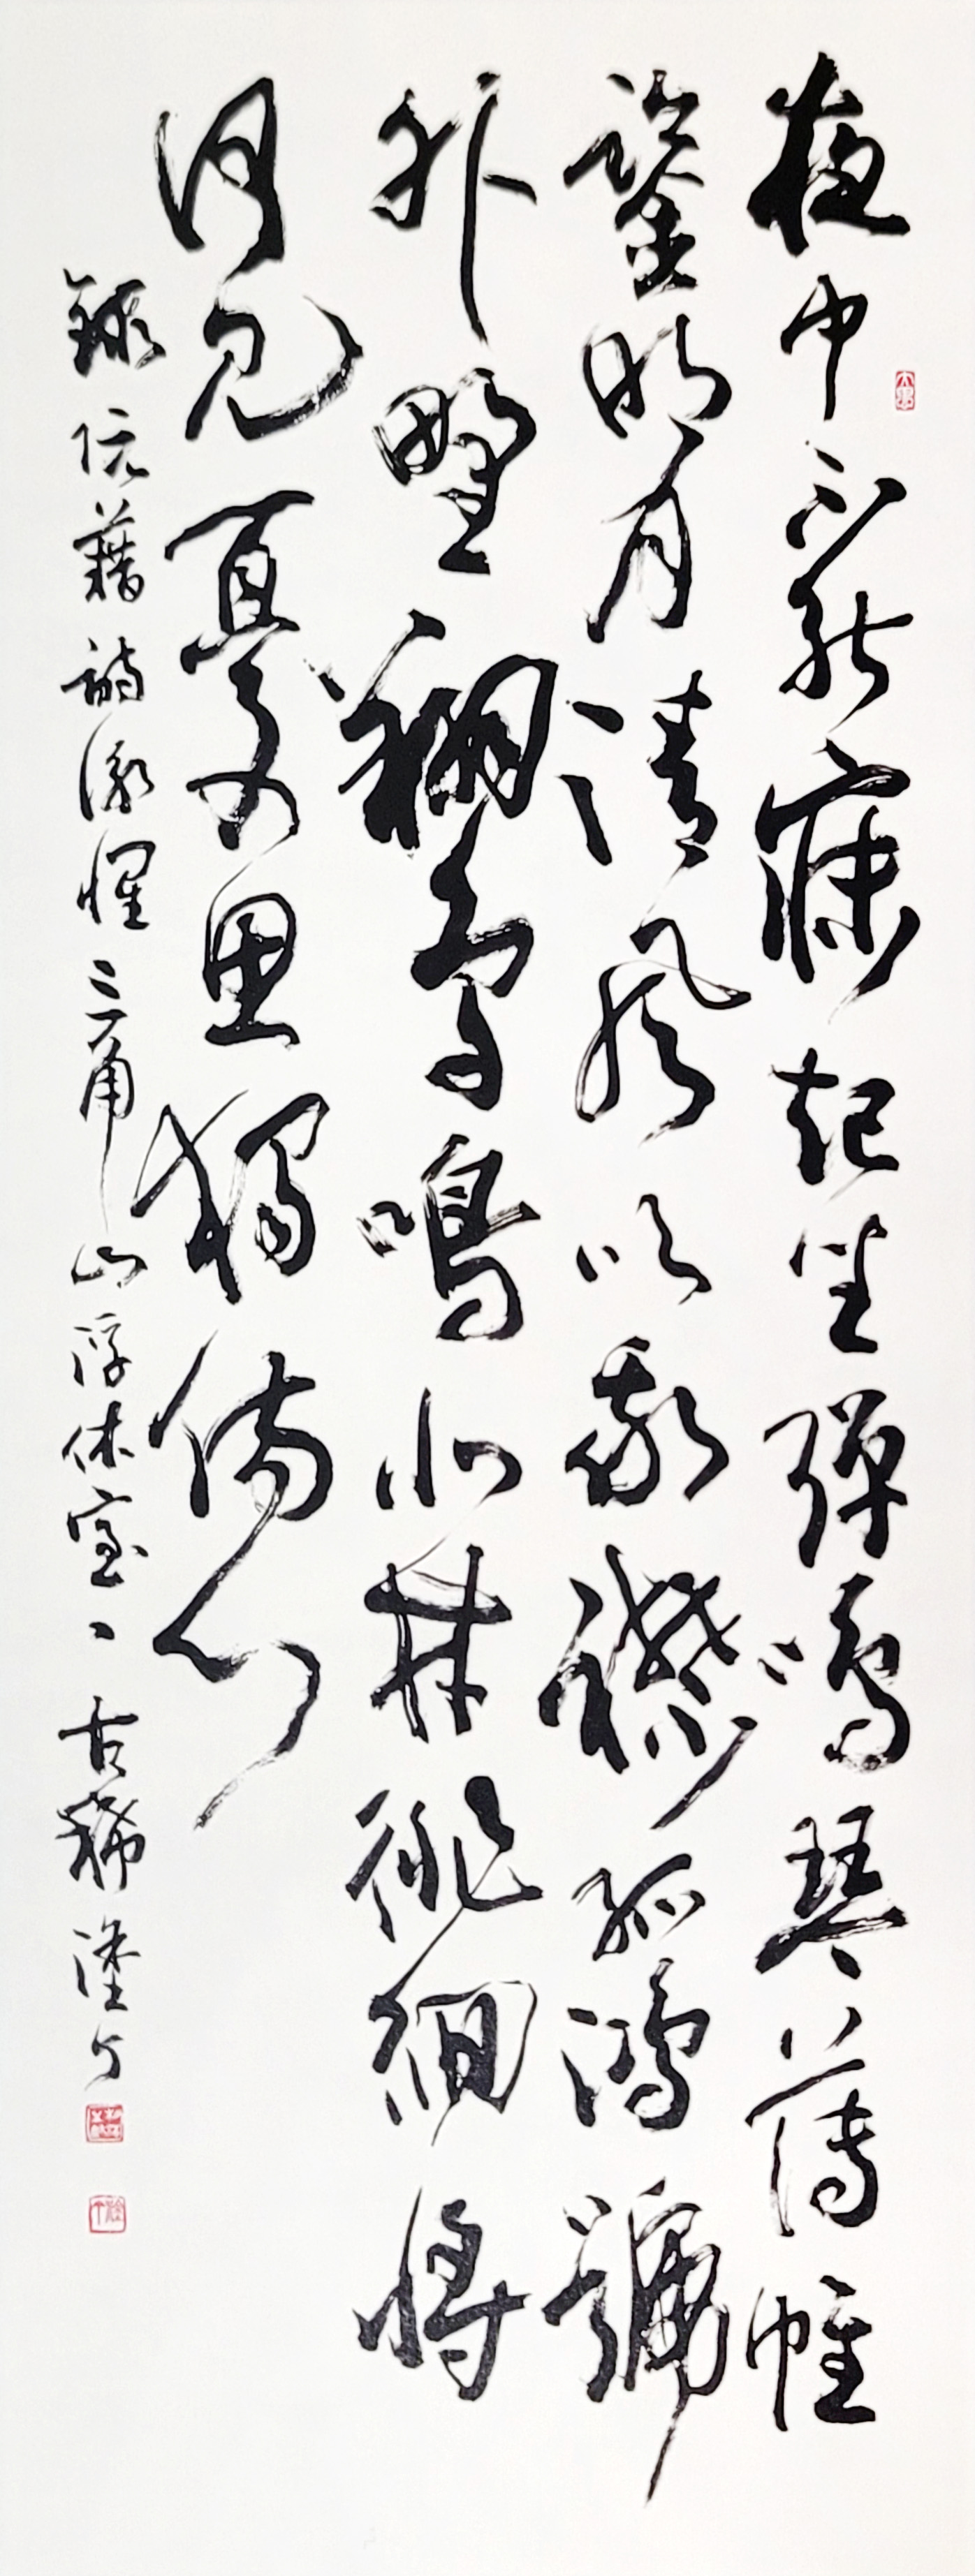 夜中不能寐起坐彈鳴琴薄帷
鑒明月清風吹我襟孤鴻號
外野翔鳥鳴北林徘徊將
何見憂思獨傷心
錄阮藉詩詠懷三角山浮休室古稀塗丁